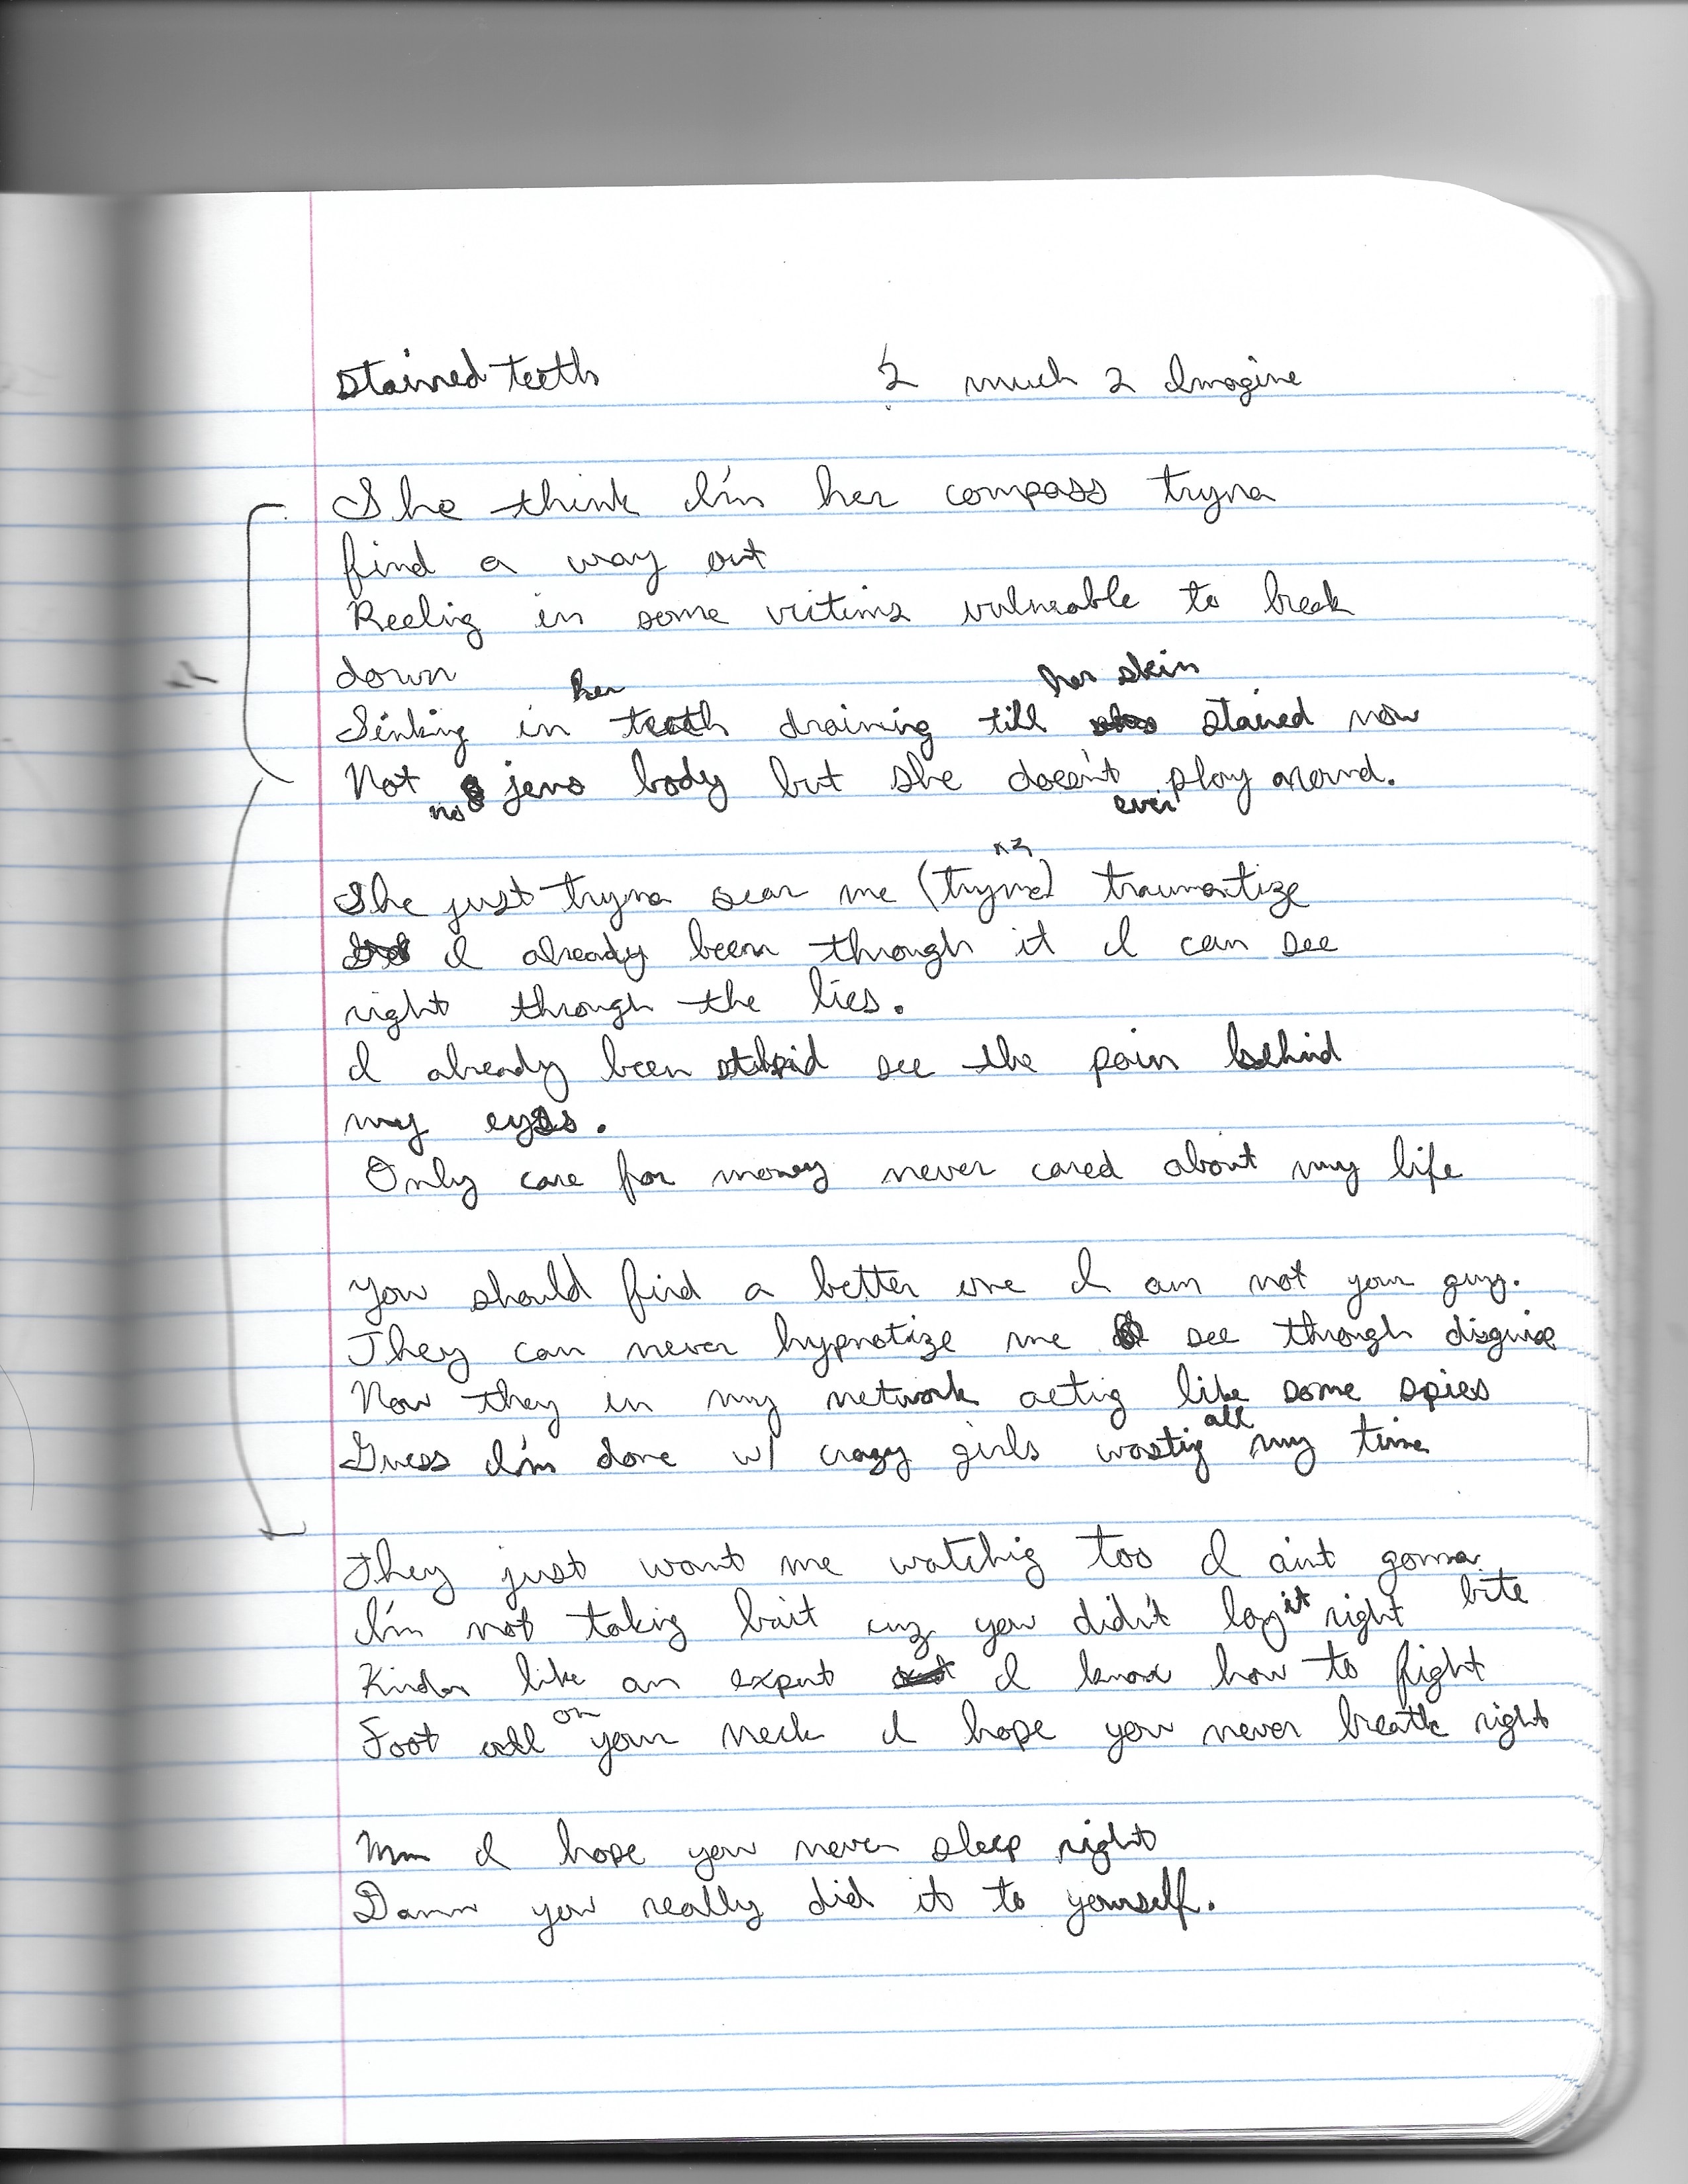 Stained teeth 2 much 2 Imagine
She think I'm her compass tryna
find a way out
Reelig in some victims vulneable to break
down
Sinking in her teeth draining till her skin stained now
Not no jens body but she doesn't ever play around.
She just tryna scar me (tryna) x2 traumatize
I already been through it I can see
right through the lies.
I already been stupid see the pain behind
my eyes.
Only care for money never cared about my life
You should find a better one I am not your guy.
They can never hypnotize me see through disguise
Now they in my network actig like some spies
Guess I'm done w/ crazy girls wastig all my time
They just want me watchig too I aint gonna
bite
I'm not takig bait cuz you didn't lay it right
Kinda like an expert I know how to fight
Foot all on your neck I hope you never breath right
Mm I hope you never sleep right
Damn you really did it to yourself.